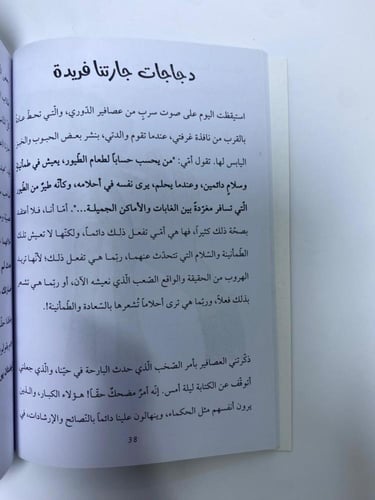 دجاجات جارتنا فريدة
استيقظت اليوم على صوت سربٍ من عصافير الدّوري، والّتي تحطّ عادةً
بالقرب من نافذة غرفتي، عندما تقوم والدتي، بنشر بعض الحبوب والخبز
اليابس لها. تقول أمّي: "من يحسب حساباً لطعام الطّيور، يعيش في طمأنينة
وسلامٍ دائمين، وعندما يحلم، يرى نفسه في أحلامه، وكأنّه طيرٌ من الطّيور
الّتي تسافر مغرّدةً بين الغابات والأماكن الجميلـة...". أمّا أنـا، فـلا أعتقد
بصحّة ذلك كثيراً، فها هي أمّي تفعـل ذلـك دائمـاً، ولكنّهـا لا تعيـش تلك
الطّمأنينة والسّلام التي تتحدّث عنهمـا، ربمـا هـي تفعـل ذلـك؛ لأنّها تريد
الهروب من الحقيقة والواقع الصّعب الّذي نعيشه الآن، أو ربّمـا هـي تحـلم
بذلك فعلاً، وربّما هي ترى أحلاماً تُشعرها بالسّعادة والطّمأنينة!.
ذكّرتني العصافير بأمر الصّخب الّذي حدث البارحة في حيّنا، والّذي جعلني
أتوقّف عن الكتابة ليلة أمس. إنّه أمرٌ مضحكٌ حقّـاً! هـؤلاء الكبـار، والـذين
يرون أنفسهم مثل الحكماء، وينهالون علينا دائماً بالنّصائح والإرشادات، في
38